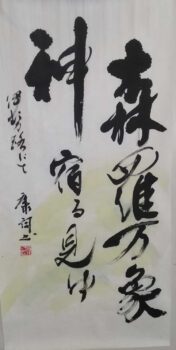 森羅万象
神宿る見ゆ
伊勢路にて
康詞